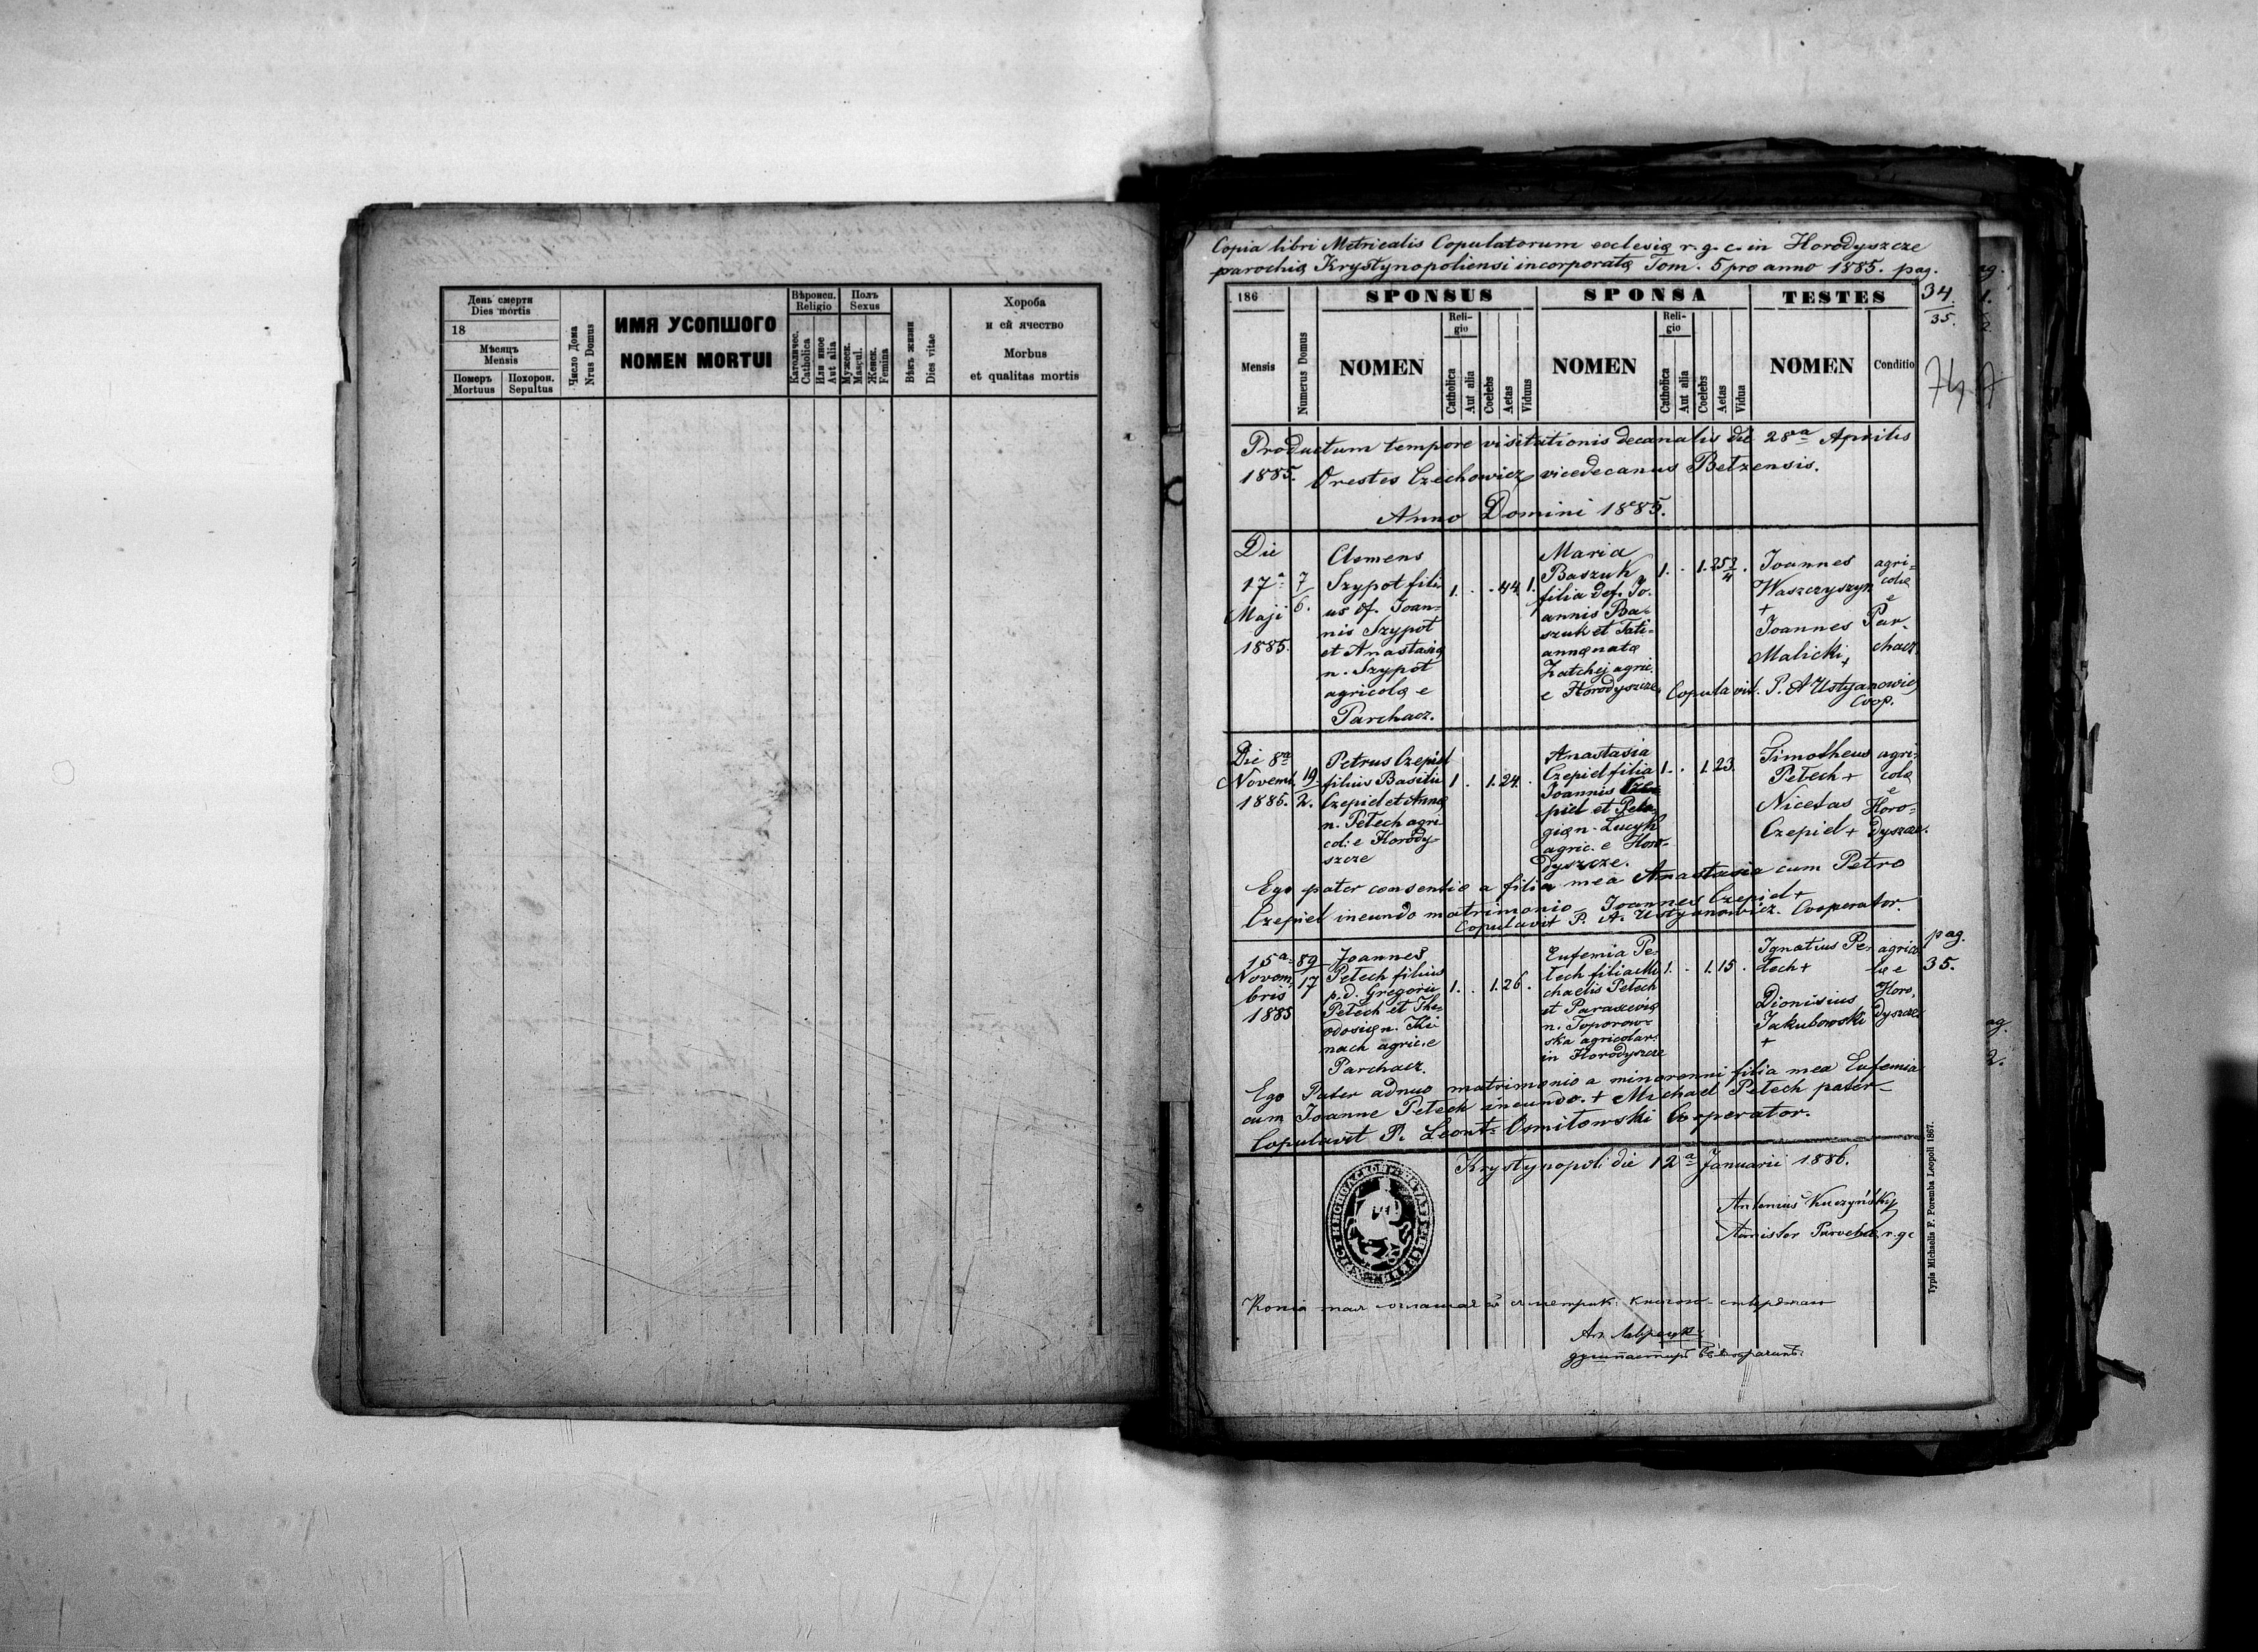 День смерти
Dies mortis
18
Мѣсяцъ
Mensis
Померъ
Mortuus
Похорон.
Sepultus
Число Дома
Nrus Domus
ИМЯ УСОПШОГО
NOMEN MORTUI
Вѣроисп.
Religio
Католичес.
Catholica
Или иное
Aut alia
Полъ
Sexus
Мужеск.
Mascul.
Женск.
Femina
Вѣкъ жизни
Dies vitae
Хороба
и єй ячество
Morbus
et qualitas mortis
Copia libri Metricalis Copulatorum ecclesiæ r. g. c. in Horodyszcze
parochiæ Krystynopoliensi incorporatæ Tom. 5 pro anno 1885. pag.
34
35.
74
186
Mensis
Numerus Domus
SPONSUS
NOMEN
Reli-
gio
Catholica
Aut alia
Coelebs
Aetas
Viduus
SPONSA
NOMEN
Reli-
gio
Catholica
Aut alia
Coelebs
Aetas
Vidua
TESTES
NOMEN
Conditio
Productum tempore visitationis decanalis die 28va Aprilis
1885. Orestes Czechowicz vicedecanus Betzensis.
Anno Domini 1885.
Die
17a
Maji
1885.
7
6.
Clemens
Szypot fili-
us def. Joan-
nis Szypot
et Anastasiæ
n. Szypot
agricolæ e
Parchacz.
1. . . 44 1.
Maria
Baszuk
filia def. Jo-
annis Ba-
szuk et Tati-
annæ natæ
Zatchej agric.
e Horodyszcze
1. . 1. 25 3/4 .
Joannes
Waszczyszyn
+
Joannes
Malicki +
agri-
colæ
e
Par-
chacz
Copulavit P. A Ustyanowicz
Coop.
Die 8va
Novemb.
1885.
19
2.
Petrus Czepiel
filius Basilii
Czepiel et Annæ
n. Petech agri
col: e Horody-
szcze
1 . 1. 24 .
Anastasia
Czepiel filia
Joannis Cze-
piel et Pela-
giæ n. Lucyk
agric. e Horo-
dyszcze.
1. . 1. 23.
Timotheus
Petech +
Nicetas
Czepiel +
agri-
colæ
e
Horo-
dyszcze.
Ego pater consentio a filia mea Anastasia cum Petro
Czepiel ineundo matrimonio Joannes Czepiel +
Copulavit P. A. Ustyanowicz. Cooperator.
15a
Novem
bris
1885
89
17
Joannes
Petech filius
p. d. Gregorii
Petech et The-
odosiæ n. Thi
nach agric. e
Parchacz.
1. . 1. 26 .
Eufemia Pe-
tech filia Mi-
chaelis Petech
et Parasceviæ
n. Toporow-
ska agricolar.
in Horodyszcze
1. . 1. 15 .
Ignatius Pe-
tech +
Dionisius
Jakubowski
+
agrico
læ e
Horo-
dyszcze
pag.
35.
Ego Pater adnuo matrimonio a minorenni filia mea Eufemia
cum Joanne Petech ineundo. + Michael Petech pater
Copulavit P. Leont: Osmitowski Cooperator.
Krystynopoli die 12a Januarii 1886.
Antonius Kuczyńsky
r. gc
Typis Michaelis F. Poremba Leopoli 1867.